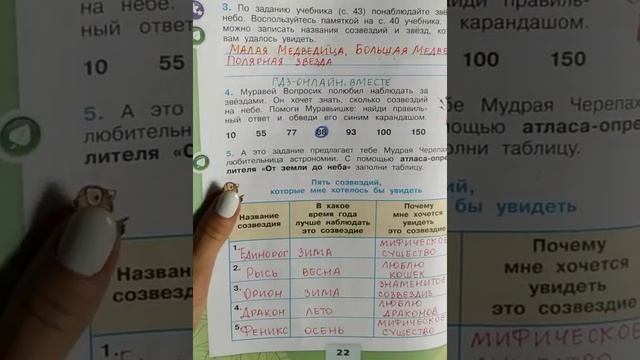 3. По заданию учебника (с. 43) понаблюдайте
небо. Воспользуйтесь памяткой на с. 40 учебника.
можно записать названия созвездий и звёзд,
вам удалось увидеть.
МАЛАЯ МЕДВЕДИЦА, БОЛЬШАЯ
ПОЛЯРНАЯ ЗВЕЗДА
ГДЗ-ОНЛАЙН. ВМЕСТЕ
4. Муравей Вопросик полюбил наблюдать за
звёздами. Он хочет знать, сколько созвездий
на небе. Помоги Муравьишке: найди правиль-
ный ответ и обведи его синим карандашом.
10 55 77 88 93 100 150
5. А это задание предлагает тебе Мудрая
любительница астрономии. С помощью атласа-опре-
лителя «От земли до неба» заполни таблицу.
Пять созвездий,
которые мне хотелось бы увидеть
Название созвездия
В какое время года лучше наблюдать это созвездие
Почему мне хочется увидеть это созвездие
1. ЕДИНОРОГ ЗИМА МИФИЧЕСКОЕ СУЩЕСТВО
2. РЫСЬ ВЕСНА ЛЮБЛЮ КОШЕК
3. ОРИОН ЗИМА ЗНАМЕНИТОЕ СОЗВЕЗДИЕ
4. ДРАКОН ЛЕТО ЛЮБЛЮ ДРАКОНОВ
5. ФЕНИКС ОСЕНЬ МИФИЧЕСКОЕ СУЩЕСТВО
22